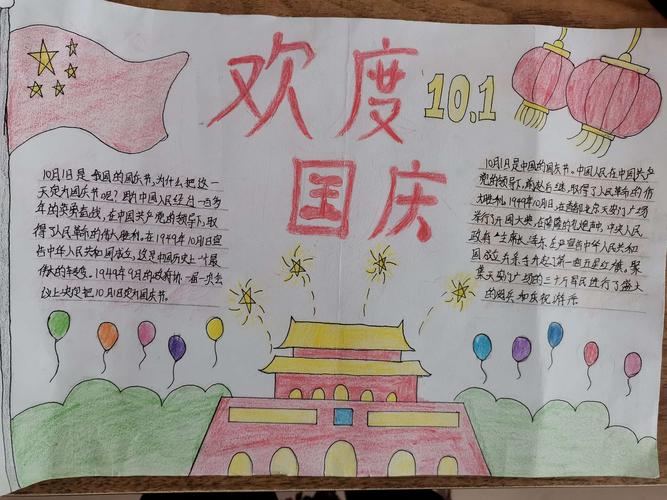 欢度
10.1
国庆
10月1日是我国的国庆节,为什么把这一
天定为国庆节呢?因为中国人民经过一百多
年的英勇奋战,在中国共产党的领导下,取
得了人民革命的伟大胜利。在1949年10月1日宣
告中华人民共和国成立,这是中国历史上一个最
伟大的转变。1949年9月的政府协 届一次会
议上决定把10月1日定为国庆节。
10月1日是中国的国庆节。中国人民在中国共产
党的领导下,前赴后继,取得了人民革命的伟
大胜利。1949年10月1日,在首都北京天安门广场
举行了开国大典,在隆隆的礼炮声中,中央人民
政府 主席 泽东 宣告中华人民共和
国成立 升起了第一面五星红旗。聚
集天安门广场的三十万军民进行了盛大
的阅兵和庆祝游行